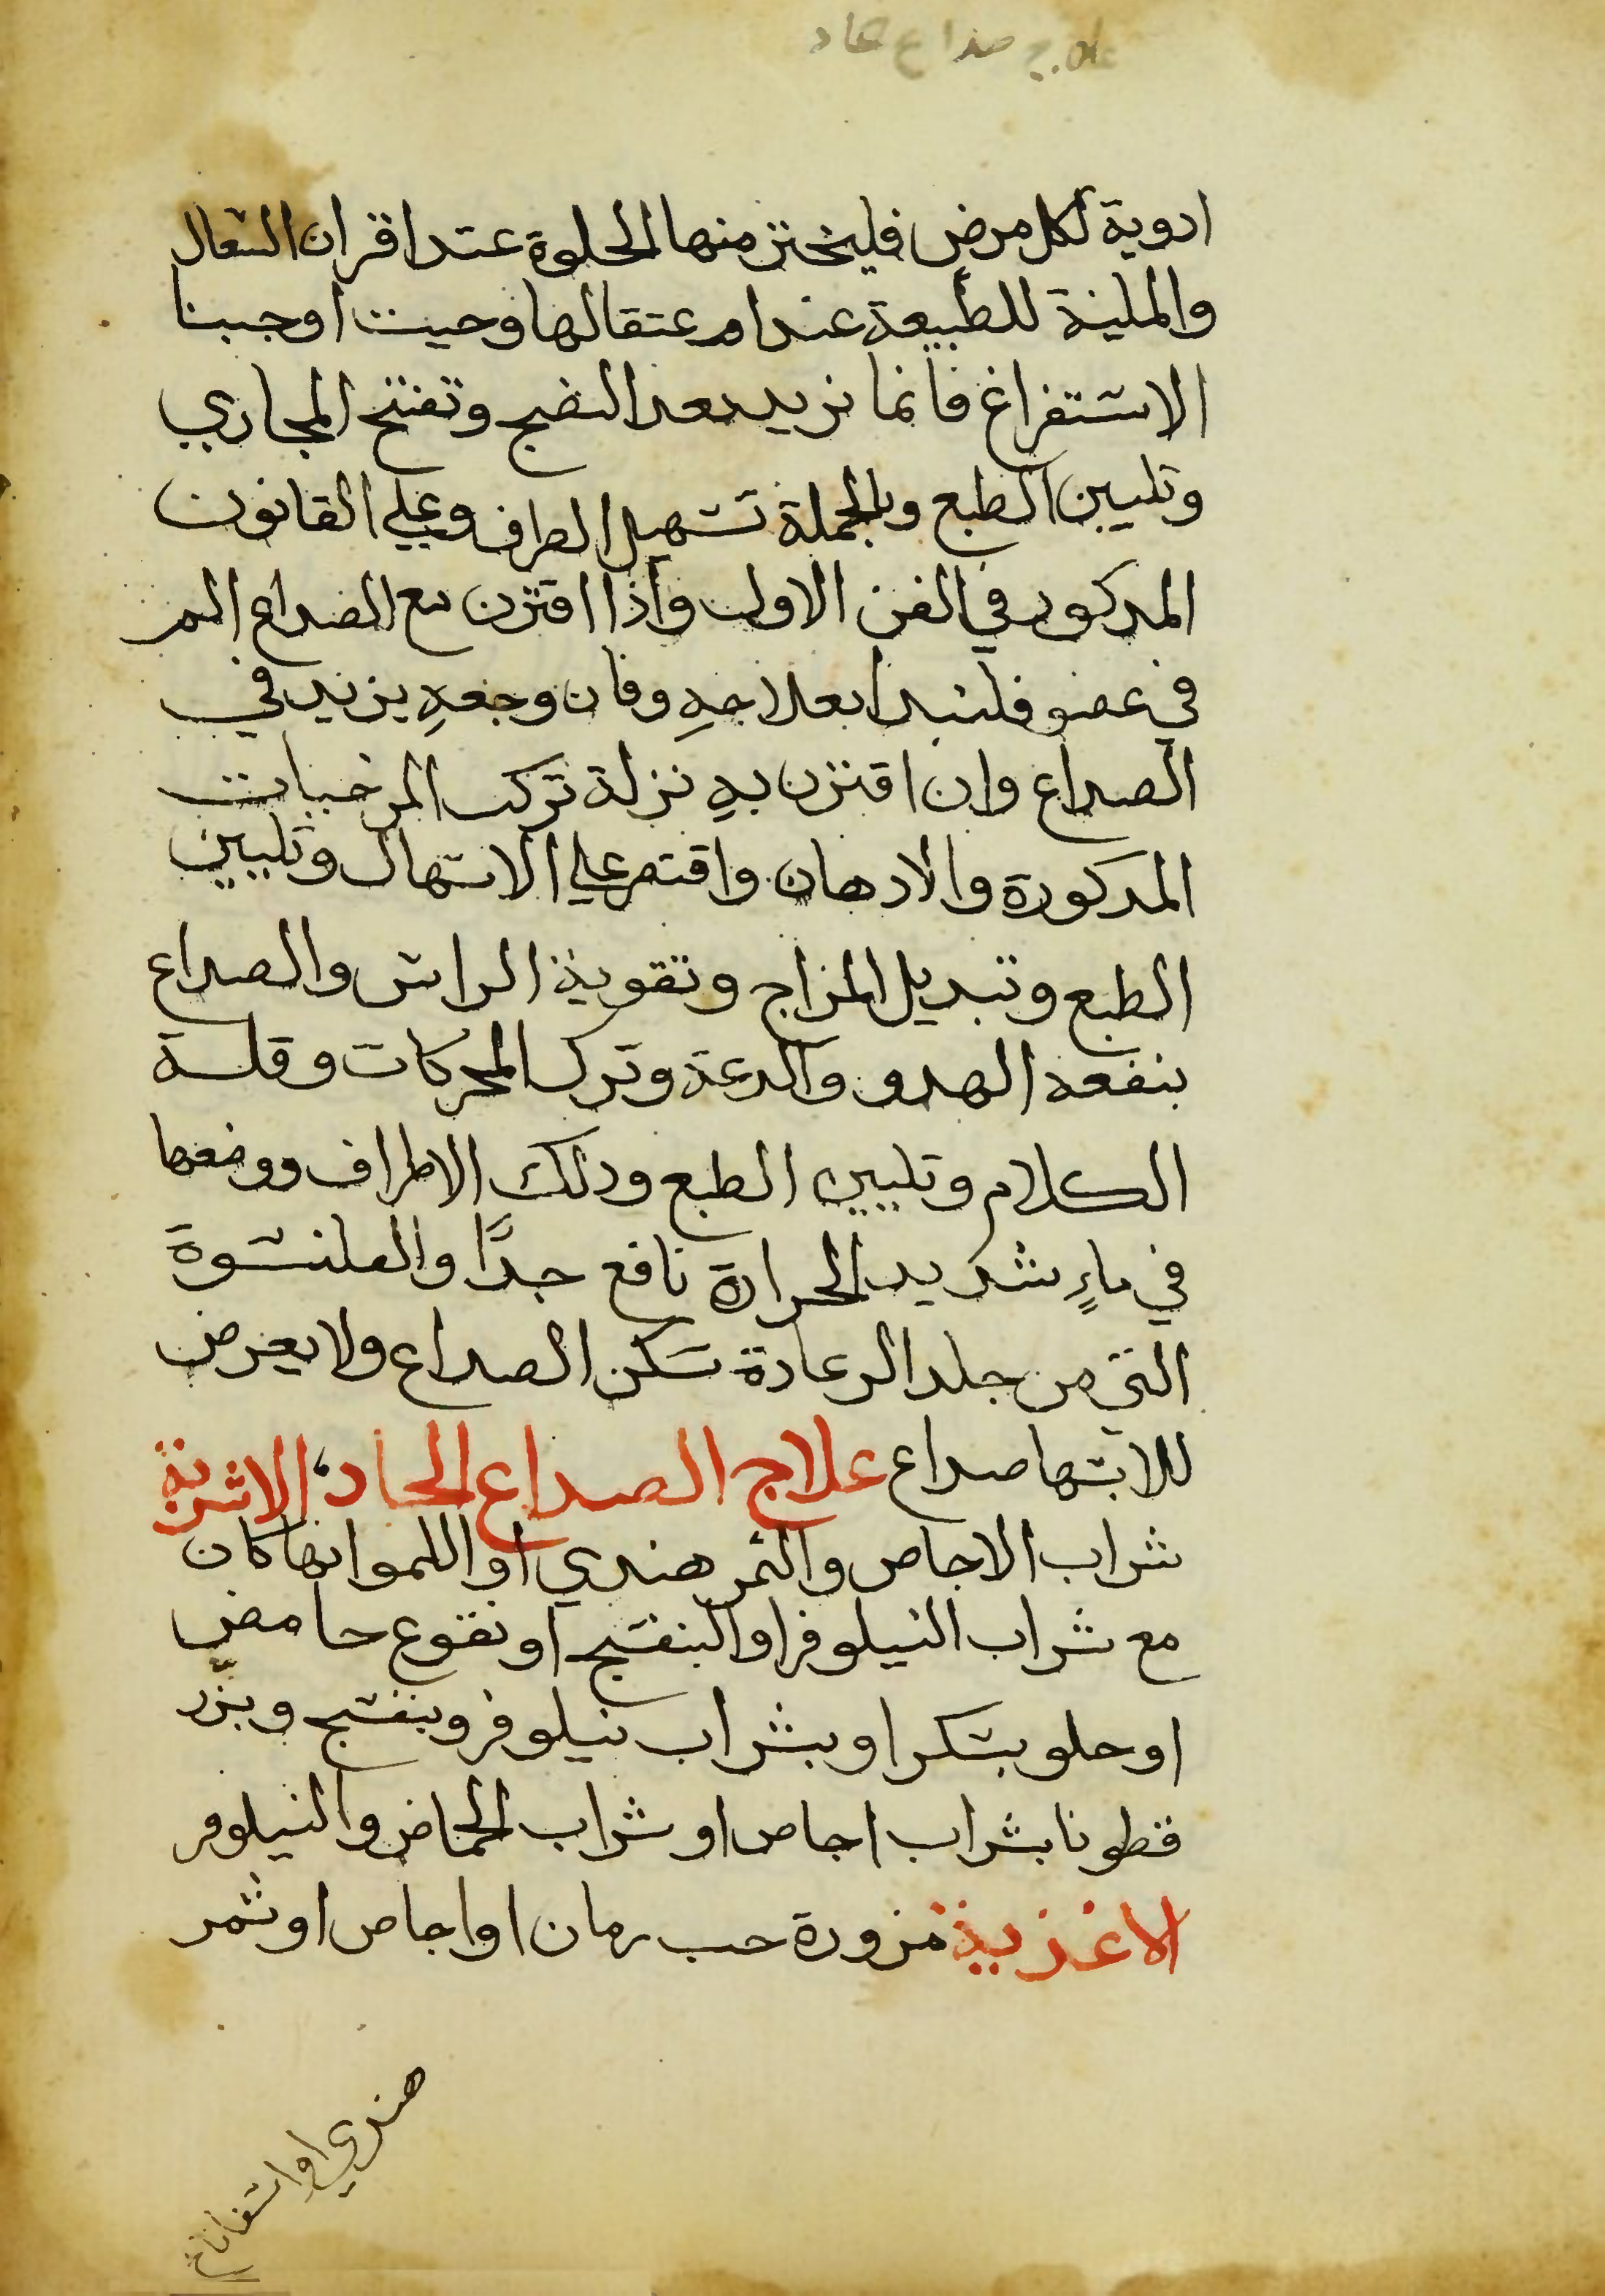 علاج صداع حاد
ادوية لكل مرض فليختر منها الحلوة عند اقران السعال
والملينة للطبيعة عند اعتقالها وحيث اوجبنا
الاستفراغ فانما نريد بعد النضج وتفتح المجاري
وتليين الطبع وبالجملة تسهيل الطرف وعلي القانون
المدكور في الفن الاول واذا اقترن مع الصداع الم
في عضو فلنبدا بعلاجهِ وفان وجعهِ يزيد في
الصداع وان اقترن بهِ نزلة تركت المرخيات
المدكورة والادهان واقتصر علي الاسهال وتليين
الطبع وتبديل المزاج وتقوية الراس والصداع
ينفعه الهدو والدعة وترك المحركات وقلة
الكلام وتليين الطبع ودلك الاطراف ووضعها
في ماءٍ شديد الحرارة نافع جدًا والقلنسوة
التي من جلد الرعادة تسكن الصداع ولا يعرض
للابسها صداع علاج الصداع الحاد، الاشربة
شراب الاجاص والتمر هندي او اللموا ايها كان
مع شراب النيلوفر او البنفسج او نقوع حامض
او حلو بسكر او بشراب نيلوفر وبنفسج وبزر
قطونا بشراب اجاص او شراب الحماض والنيلوفر
الاغذية مزورة حب رمان او اجاص او تمر
هندي او اسفاناخ